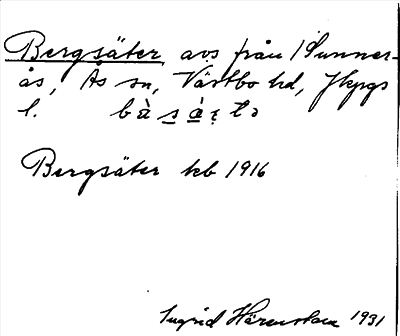 Bergsäter avs från /Sunner-
ås, Ås sn, Västbo hd, Jkpgs
l. bà s æ̀ ṭə
Bergsäter kb 1916
Ingrid Härenstam 1931